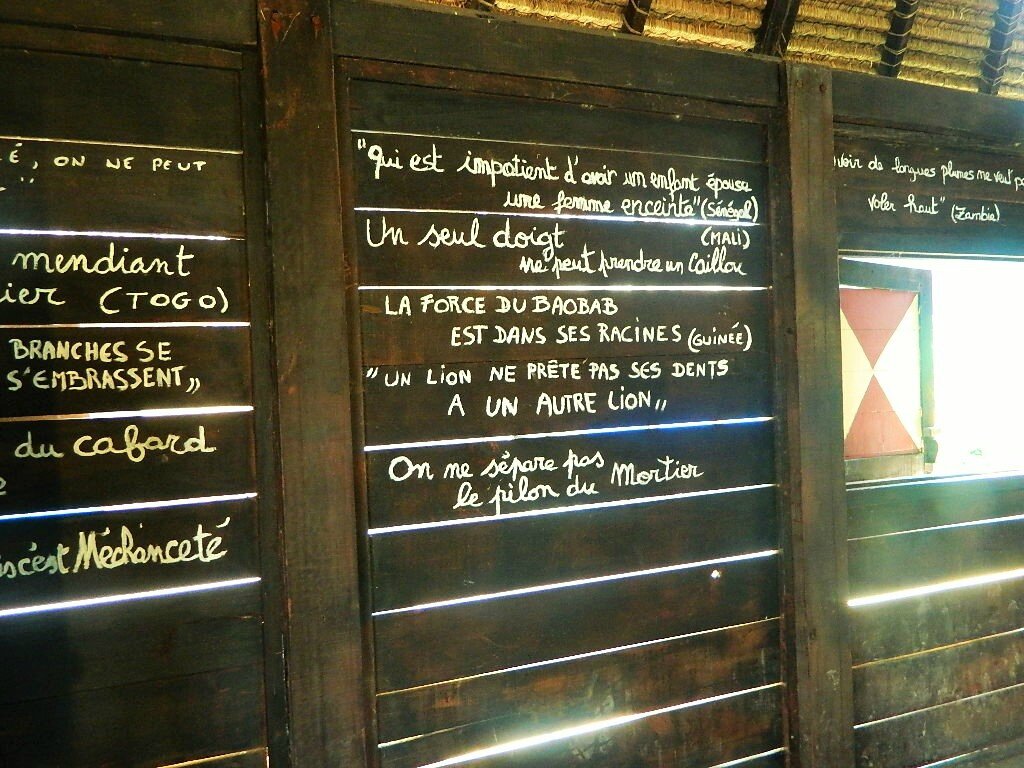 É, ON NE PEUT
"
mendiant
ier (TOGO)
BRANCHES SE
S'EMBRASSENT„
du cafard
e
c'est Méchanceté
"Qui est impatient d'avoir un enfant épouse
une femme enceinte" (Sénégal)
Un seul doigt (MALI)
ne peut prendre un Caillou
LA FORCE DU BAOBAB
EST DANS SES RACINES (GUINÉE)
"UN LION NE PRÊTE PAS SES DENTS
A UN AUTRE LION„
On ne sépare pas
le pilon du Mortier
avoir de longues plumes ne veut pa
voler haut" (Zambie)